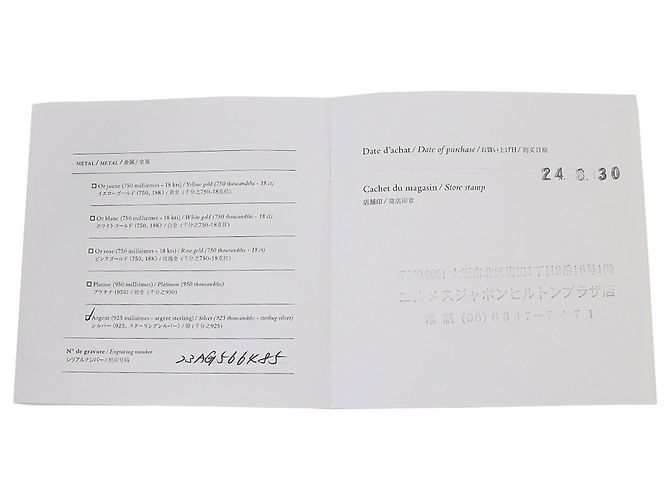 METAL / METAL / 金属 / 金属
Or jaune (750 millièmes - 18 kts) / Yellow gold (750 thousandths - 18 ct)
イエローゴールド (750, 18K) / 黄金 (千分之750-18克拉)
Or blanc (750 millièmes - 18 kts) / White gold (750 thousandths - 18 ct)
ホワイトゴールド (750, 18K) / 白金 (千分之750-18克拉)
Or rose (750 millièmes - 18 kts) / Rose gold (750 thousandths - 18 ct)
ピンクゴールド (750, 18K) / 玫瑰金 (千分之750-18克拉)
Platine (950 millièmes) / Platinum (950 thousandths)
プラチナ (950) / 铂金 (千分之950)
Argent (925 millièmes - argent sterling) / Silver (925 thousandths - sterling silver)
シルバー (925, スターリングシルバー) / 银 (千分之925)
N° de gravure / Engraving number
シリアルナンバー / 刻印号码
23AG566K85
Date d'achat / Date of purchase / お買い上げ日 / 购买日期
24 8. 30
Cachet du magasin / Store stamp
店舗印 / 商店印章
〒530-0001 大阪市北区梅田1丁目8番16号1階
エルメスジャポンヒルトンプラザ店
電話 (06) 6347-7471